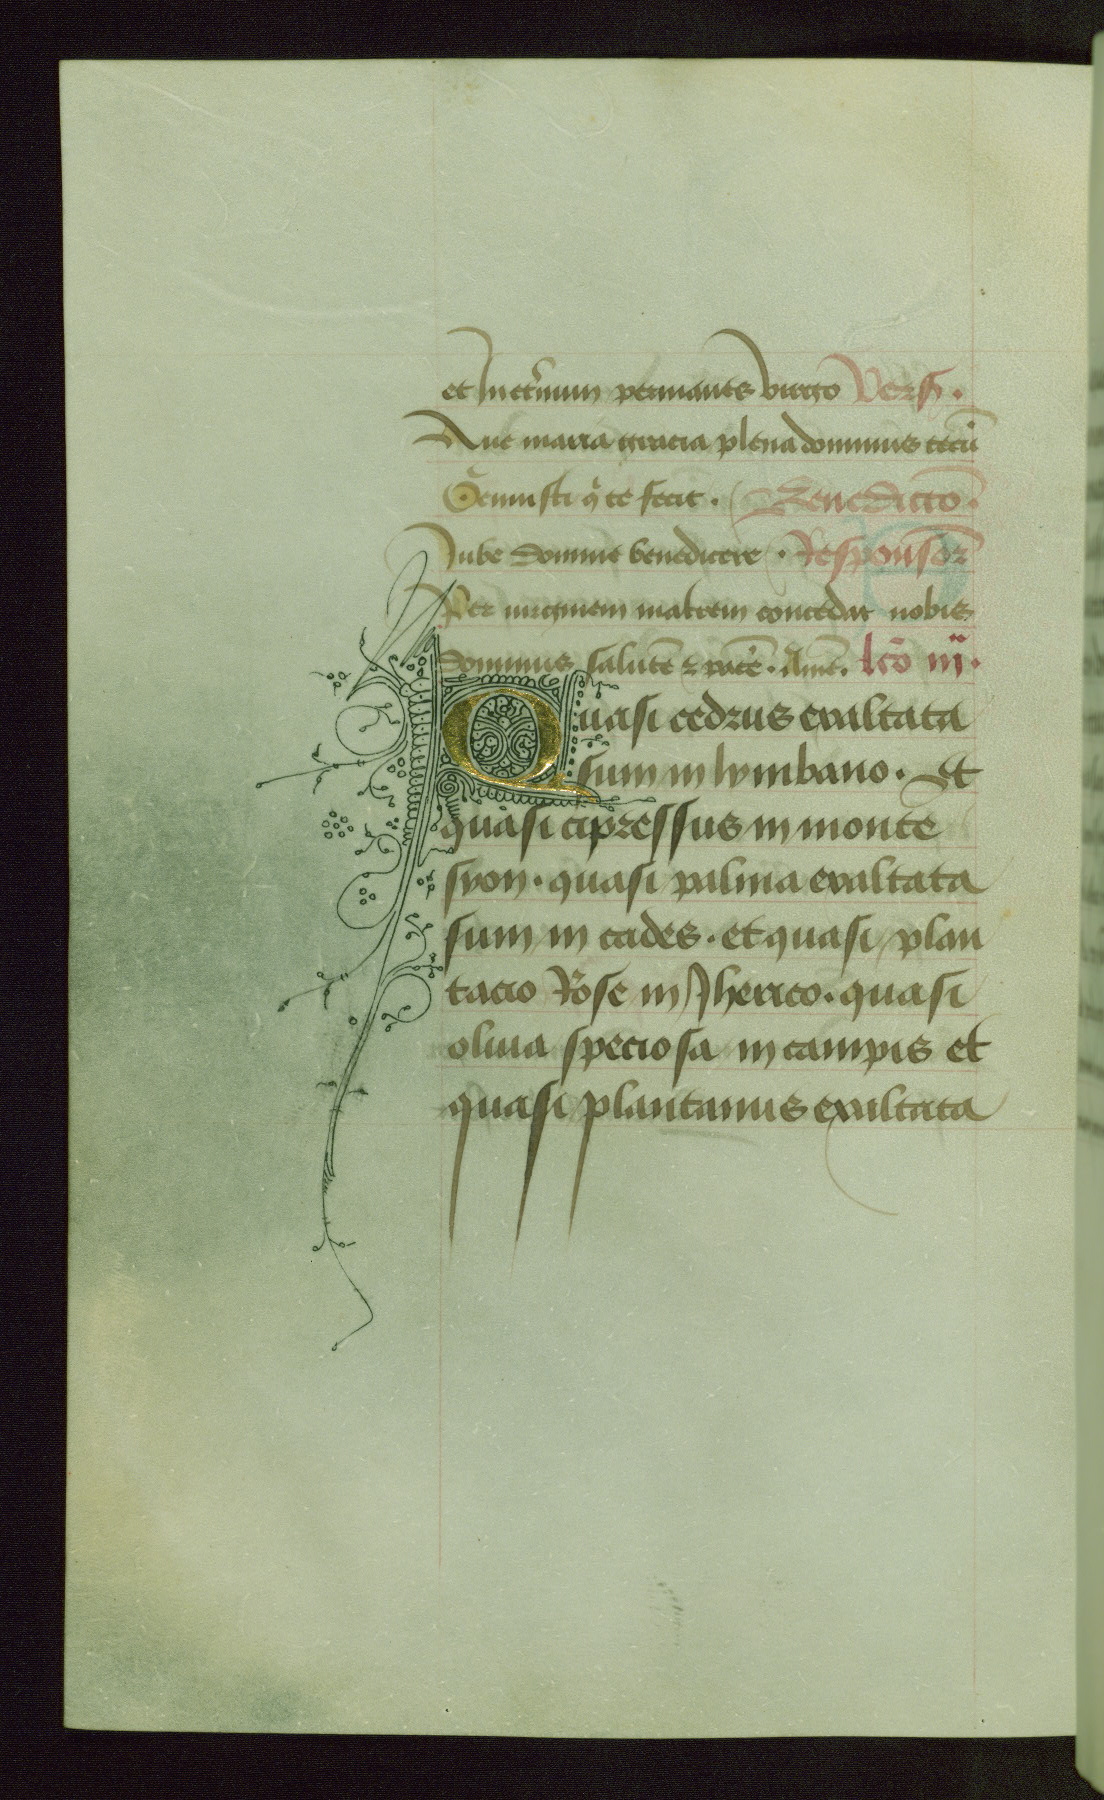 et Inet̾num permanes virgo Vers̾.
Aue maria gracia plena dominus tecū
Genuisti q̄ te fecit. Benedictō.
Iube domine benedicere. Responsoꝝ
Per virginem matrem concedat nobis
dominus salutē ⁊ pacē. Amē. lcō iij.
Quasi cedrus exaltata
sum in lymbano. Et
quasi cipressus in monte
syon. quasi palma exaltata
sum in cades. et quasi plan
tacio Rose in Jherico. quasi
oliua speciosa in campis et
quasi plantanus exaltata